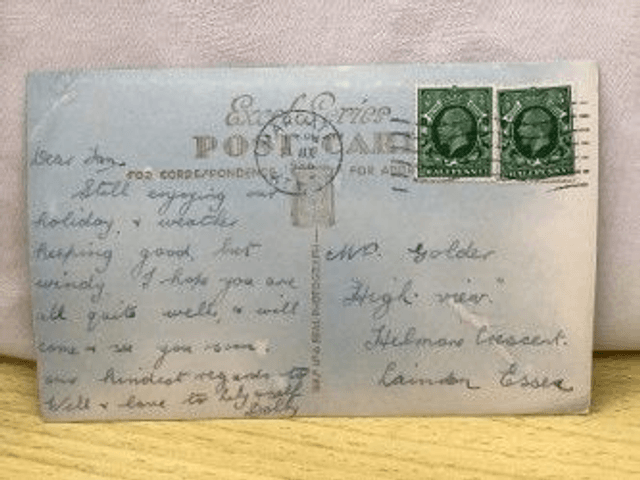 Excel Series
POST CARD
FOR CORRESPONDENCE
FOR ADD
HALFPENNY
HALFPENNY
Dear
Still enjoying our
holiday, & weather
keeping good, but
windy. I hope you are
all quite well, & will
come & see you soon.
our kindest regards to
Will & love to
Dolly
Mr. Golder
"High view"
Helmore Crescent.
Laindon Essex